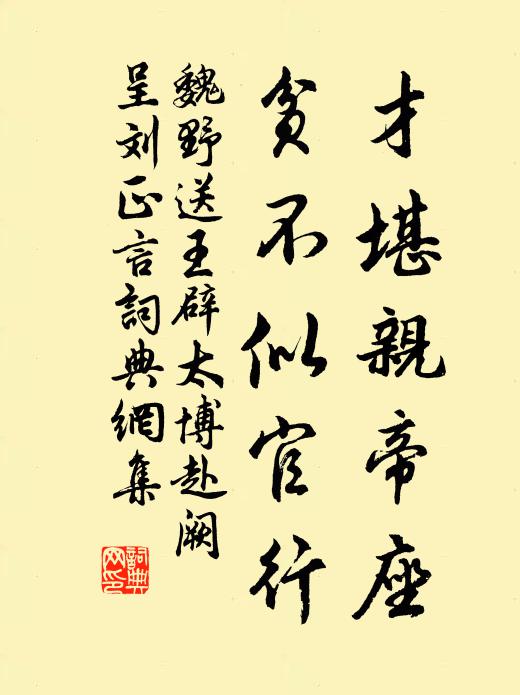 才堪親帝座
貧不似官行
魏野送王辟太博赴阙
呈刘正言詞典網集
詞典
网印